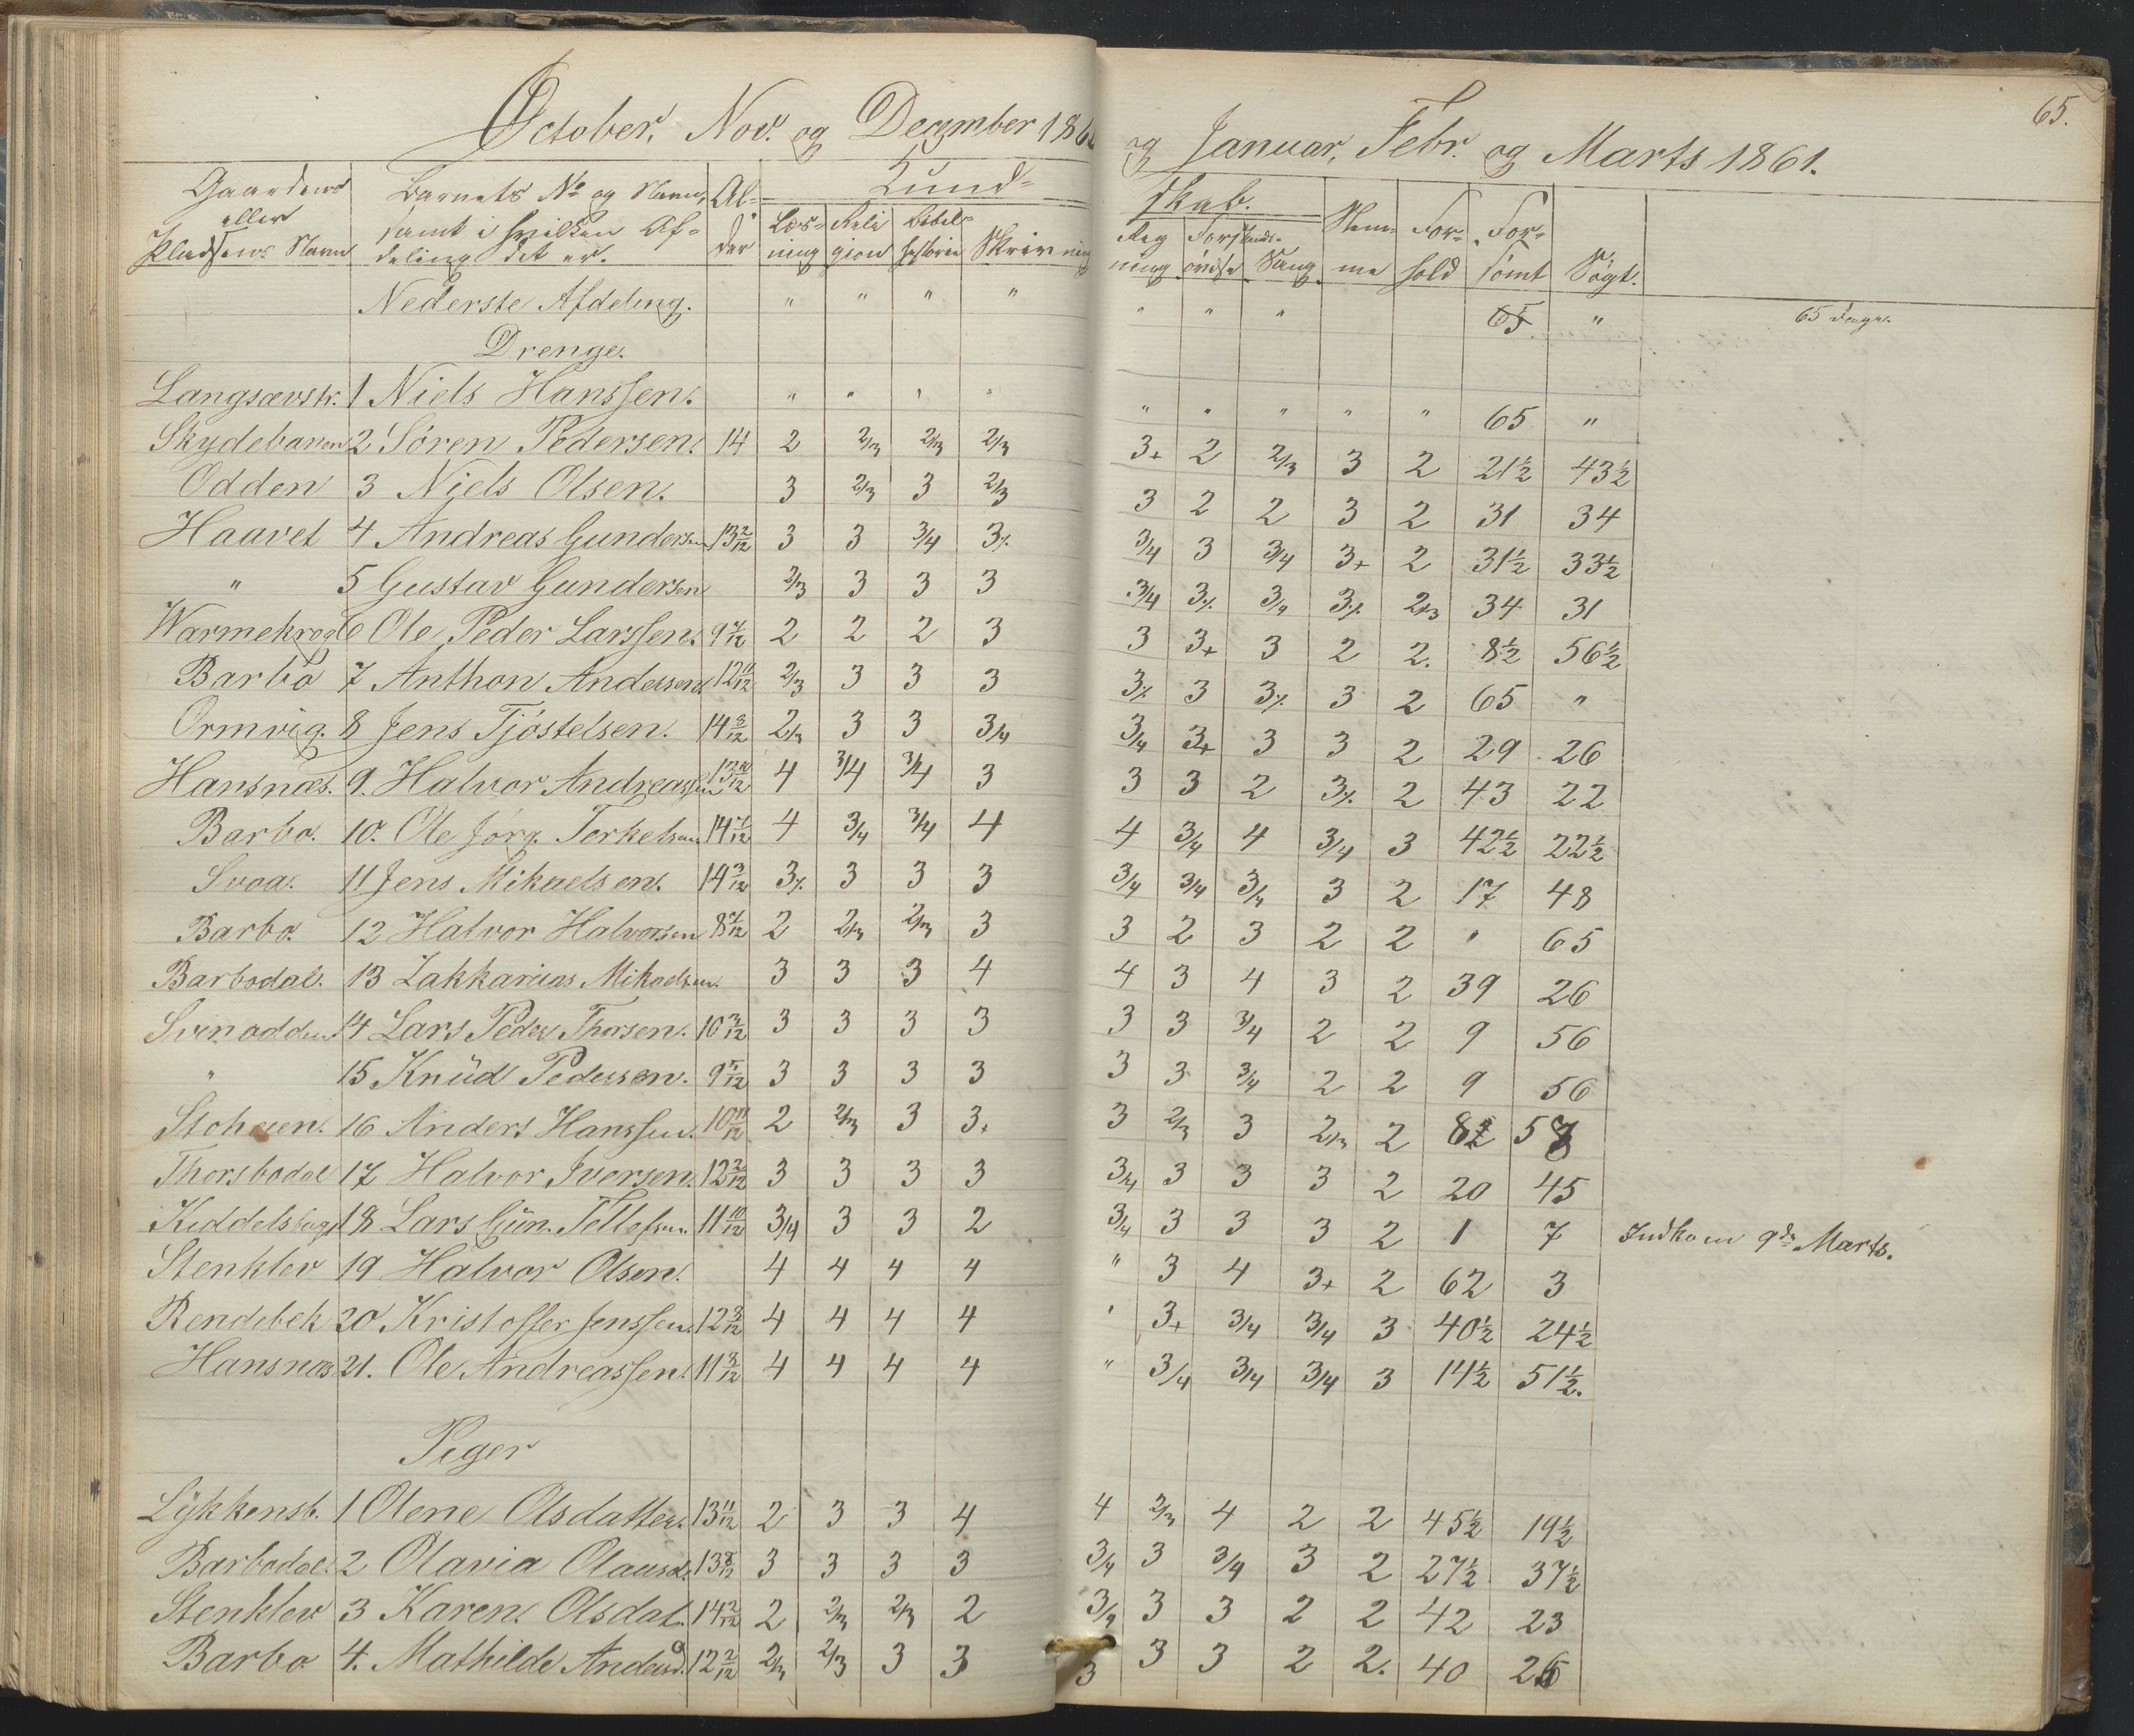 65.
October, Nov. og December 186 og Januar, Febr. og Marts 1861.
Gaardens eller Pladsens Navn | Barnets No og Navn, samt i hvilken Afdeling det er. | Alder | Kundskab. | Læsning | Religion | Bibelhistorie | Skrivning | Regning | Forstandsøvelse | Sang | Nemme | Forhold | Forsømt | Søgt.
Nederste Afdeling. " " " " " " " 65 " 65 Dage.
Drenge.
Langsævstr. 1 Niels Hanssen. " " " " " " " " " 65 "
Skydebanen 2 Sören Pedersen. 14 2 2/3 2/3 2/3 3+ 2 2/3 3 2 21½ 43½
Odden 3 Niels Olsen. 3 2/3 3 2/3 3 2 2 3 2 31 34
Haavet 4 Andreas Gundersen 13 2/12 3 3 3/4 3% 3/4 3 3/4 3+ 2 31½ 33½
" 5 Gustav Gundersen 2/3 3 3 3 3/4 3% 3/4 3% 2/3 34 31
Warmekrog 6 Ole Peder Larssen. 9 7/12 2 2 2 3 3 3+ 3 2 2. 8½ 56½
Barbo 7 Anthon Andersen 12 11/12 2/3 3 3 3 3% 3 3% 3 2 65 "
Ormvig. 8 Jens Tjöstelsen. 14 8/12 2/3 3 3 3/4 3/4 3+ 3 3 2 29 26
Hansnæs. 9. Halvor Andreassen 13 10/12 4 3/4 3/4 3 3 3 2 3% 2 43 22
Barbo. 10. Ole Jörg. Terkelsen 14 7/12 4 3/4 3/4 4 4 3/4 4 3/4 3 42½ 22½
Svoa. 11 Jens Mikaelsen. 14 9/12 3% 3 3 3 3/4 3/4 3/4 3 2 17 48
Barbo. 12 Halvor Halvorsen 8 7/12 2 2/3 2/3 3 3 2 3 2 2 " 65
Barbodal. 13 Zakkarias Mikaelsen. 3 3 3 4 4 3 4 3 2 39 26
Svinodden 14 Lars Peder Thorsen. 10 3/12 3 3 3 3 3 3 3/4 2 2 9 56
" 15 Knüd Pedersen. 9 5/12 3 3 3 3 3 3 3/4 2 2 9 56
16 Anders Hanssen. 10 11/12 2 2/3 3 3+ 3 2/3 3 2/3 2 8 58
Thorsbodal 17 Halvor Iversen. 12 2/12 3 3 3 3 3/4 3 3 3 2 20 45
18 Lars Gün. Tellefsen. 11 10/12 3/4 3 3 2 3/4 3 3 3 2 1 7 Indkom 9de Marts.
Stenklev 19 Halvor Olsen. 4 4 4 4 " 3 4 3+ 2 62 3
Rendebek 20 Kristoffer Jenssen. 12 8/12 4 4 4 4 " 3+ 3/4 3/4 3 40½ 24½
Hansnæs 21. Ole Andreassen. 11 3/12 4 4 4 4 " 3/4 3/4 3/4 3 14½ 51½.
Piger
Lykkensb. 1 Olene Olsdatter. 13 11/12 2 3 3 4 4 2/3 4 2 2 45½ 19½
Barbodal. 2 Olavia Olausd. 13 8/12 3 3 3 3 3/4 3 3/4 3 2 27½ 37½
Stenklev 3 Karen Olsdat. 14 2/12 2 2/3 2/3 2 3/4 3 3 2 2 42 23
Barbo 4. Mathilde Andersd. 12 2/12 2/3 2/3 3 3 3 3 3 2 2. 40 25